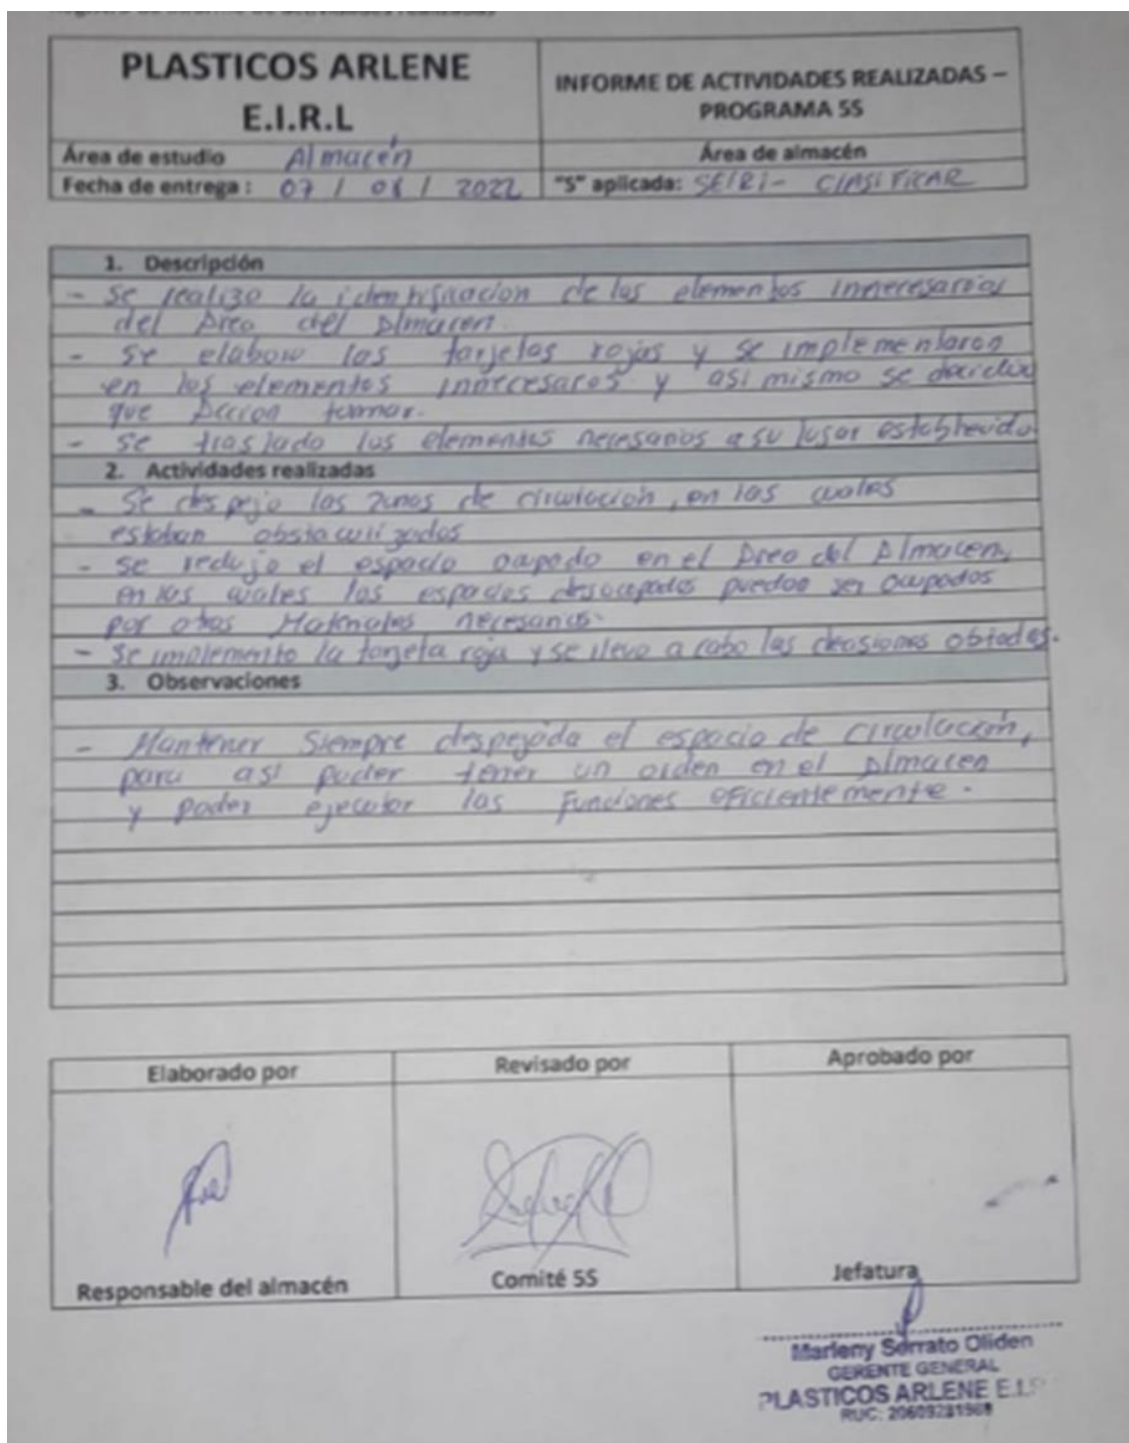 PLASTICOS ARLENE
E.I.R.L
INFORME DE ACTIVIDADES REALIZADAS –
PROGRAMA 5S
Área de estudio Almacén
Área de almacén
Fecha de entrega : 07 / 06 / 2022
"S" aplicada: SEIRI - ClASIFICAR
1. Descripción
- Se realizo la identificacion de los elementos innecesarios
del Area del Almacen.
- Se elaboro las tarjetas rojas y se implementaron
en los elementos innecesaros y asi mismo se decidio
que Accion tomar.
- Se traslado los elementos necesarios a su lugar establecido.
2. Actividades realizadas
- Se despejo las zonas de circulación, en las cuales
estaban obstaculizados
- Se redujo el espacio ocupado en el Area del Almacen,
en los cuales los espacios desocupados puedan ser ocupados
por otros Materiales necesarios.
- Se implemento la tarjeta roja y se llevo a cabo las decisiones obtadas.
3. Observaciones
- Mantener Siempre despejada el espacio de circulación,
para asi poder tener un orden en el Almacen
y poder ejecutar las Funciones eficientemente.
Elaborado por
Revisado por
Aprobado por
Responsable del almacén
Comité 5S
Jefatura
Marleny Serrato Oliden
GERENTE GENERAL
PLASTICOS ARLENE E.I.R
RUC: